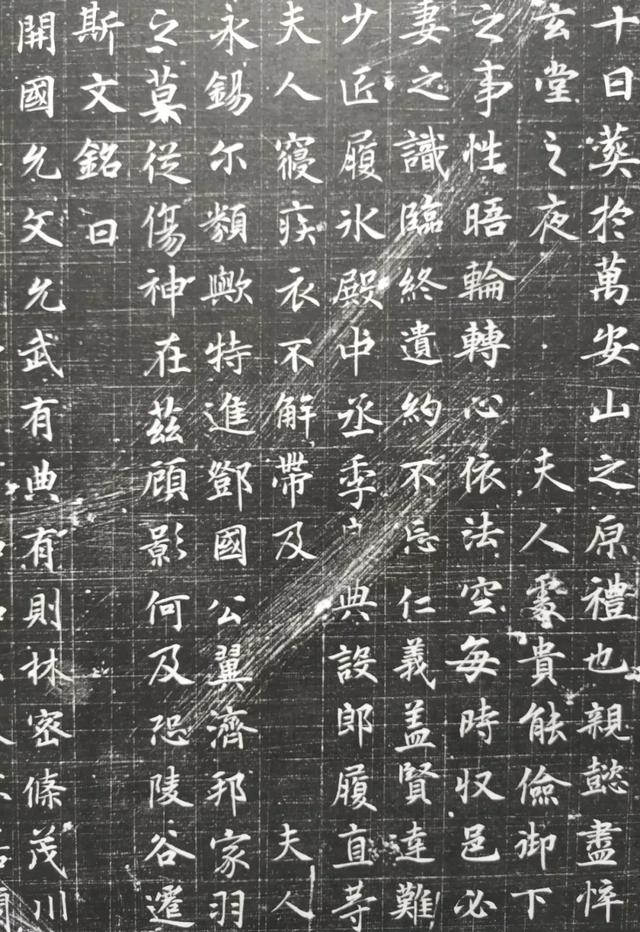 十日葬於萬安山之原禮也親懿盡悴
玄堂之夜 夫人處貴能儉御下
之事性晤輪轉心依法空每時収邑必
妻之識臨終遺約不忘仁義盖賢達難
少匠履冰殿中丞季 典設郎履直等
夫人寢疾衣不解帶及 夫人
永錫尓類歟特進鄧國公翼濟邦家羽
之慕從傷神在茲顧影何及恐陵谷遷
斯文銘曰
開國允文允武有典有則林密條茂川